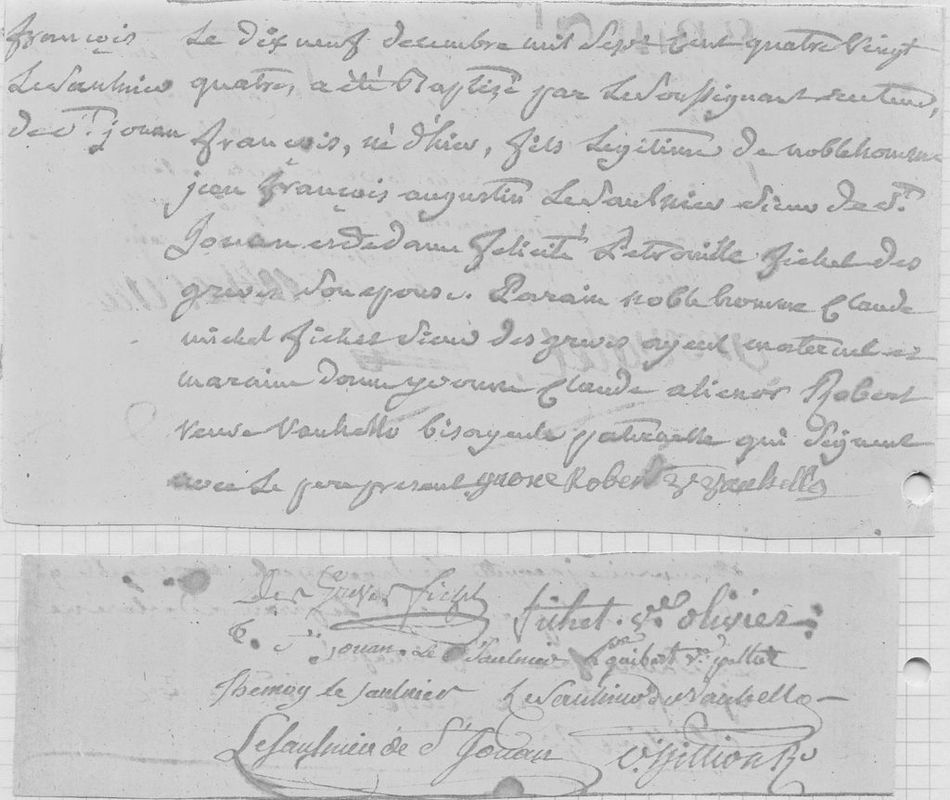 françois
LeSaulnier
de St. jouan
Le dix neuf decembre mil Sept Cent quatre Vingt
quatre, a été Baptisé par Le Soussignant recteur,
françois, né d'hier, fils Legitime de noble homme
jean françois augustin LeSaulnier sieur de St.
Jouan et de dame felicité Petronille fichet des
greves Son epouse. Parain noble homme Claude
michel fichet sieur des greves ayeul maternel et
maraine dame yvonne Claude alienor Robert
veuve Vauhello bisayeule paternelle qui Signent
avec Le pere present yvone Robert Ve Vauhello
Des Greves fichet
fichet. ve. olivier
St. jouan. Le Saulnier
le Saulnier
LeSaulnier du Vauhello
LeSaulnier de St Jouan